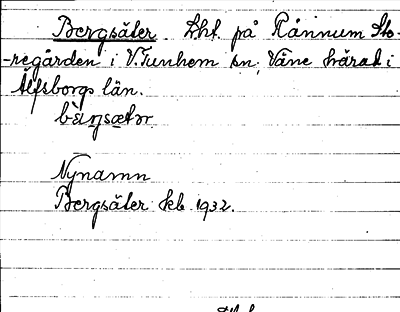 Bergsäter. Lht. på Rånnum Sto-
-regården i V. Tunhem sn, Väne härad i
Älfsborgs län.
bæ̀rjsætər
Nynamn
Bergsäter kb 1932.